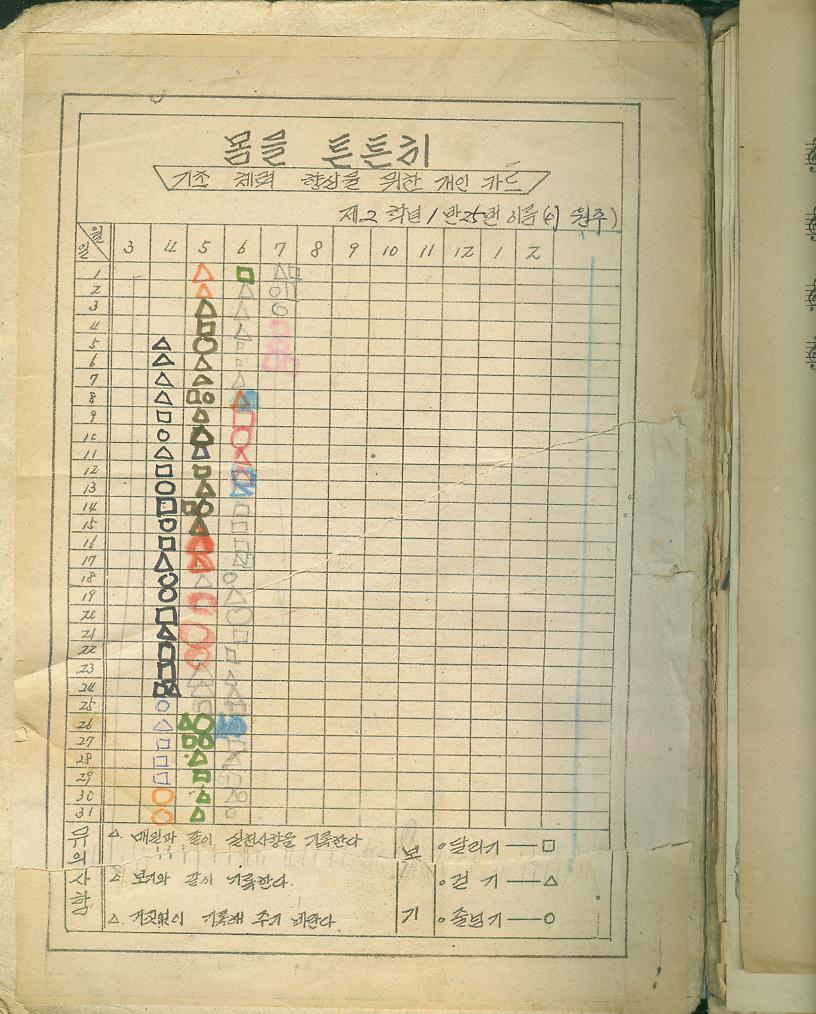 몸을 튼튼히
기초 체력 향상을 위한 개인 카드
제 2 학년 1 반 25번 이름(이 원주)
월
일
3 4 5 6 7 8 9 10 11 12 1 2
1
2
3
4
5
6
7
8
9
10
11
12
13
14
15
16
17
18
19
20
21
22
23
24
25
26
27
28
29
30
31
유의사항
△ 매일과 같이 실천사항을 기록한다
△ 보기와 같이 기록한다.
△ 거짓없이 기록해 주기 바란다
보기
○ 달리기 — □
○ 걷기 — △
○ 줄넘기 — ○